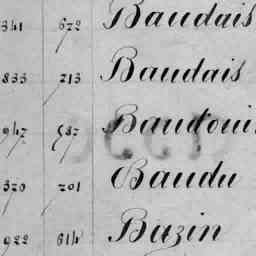 341 672 Baudais
833 213 Baudais
947 587 Baudoui
370 201 Baudu
922 614 Bazin